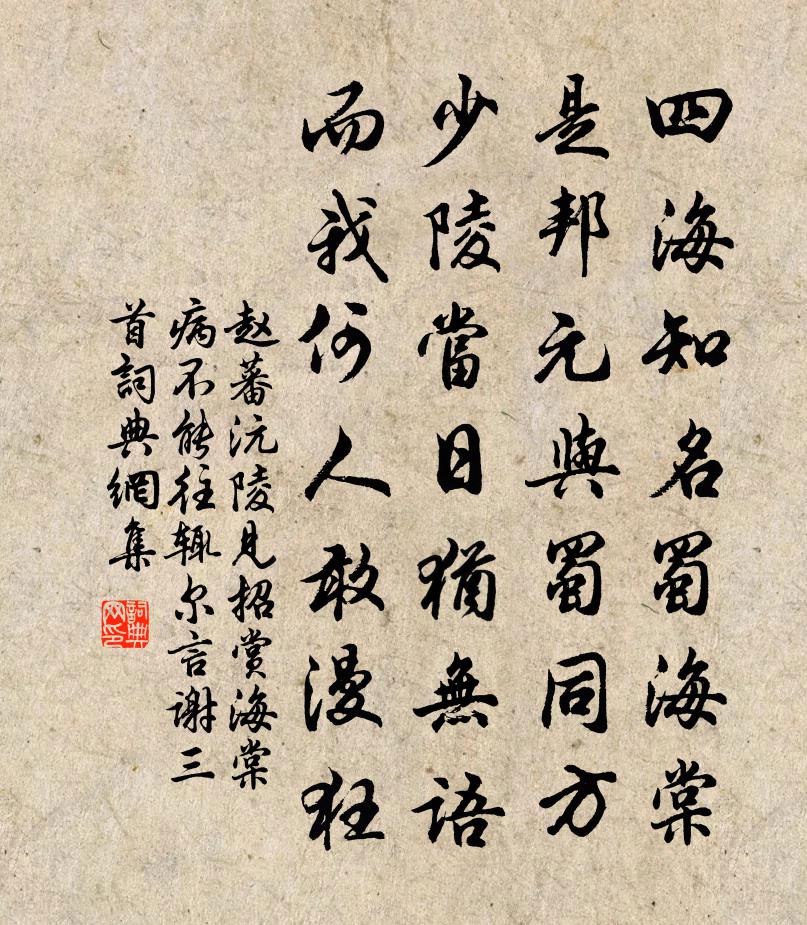 四海知名蜀海棠
是邦元與蜀同方
少陵當日猶無語
而我何人敢漫狂
赵蕃沅陵見招赏海棠
病不能往辄尔言谢三
首詞典網集
詞典
网印